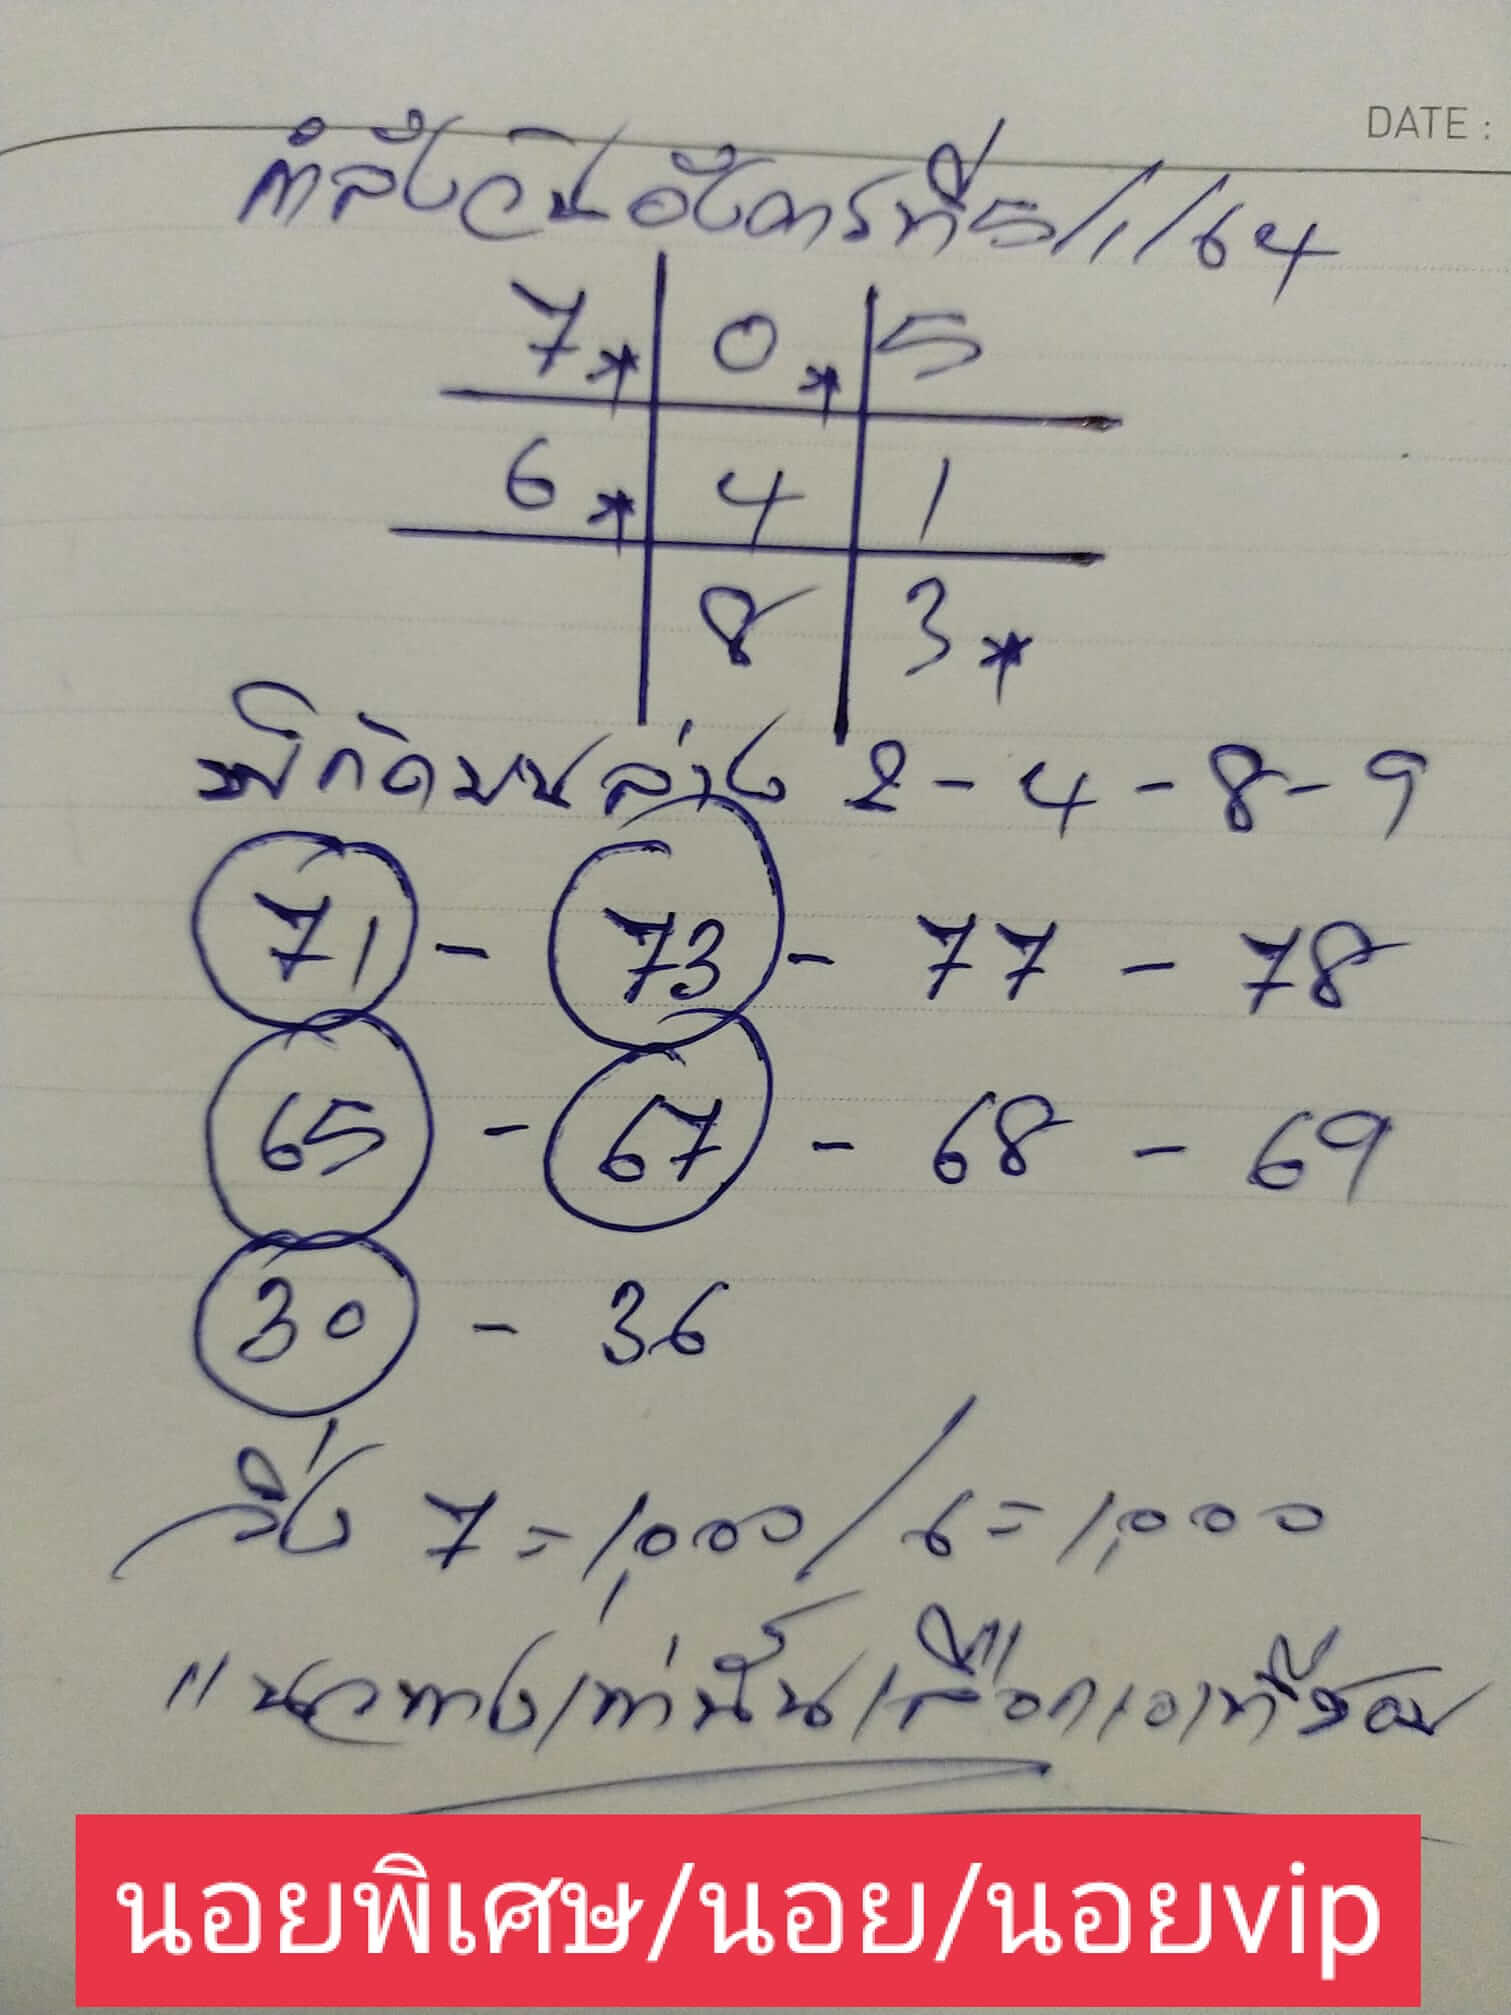 DATE :
กำลังวันอังคารที่ 5/1/64
7* 0* 5
6* 4 1
8 3*
พิกัดบนล่าง 2-4-8-9
71 - 73 - 77 - 78
65 - 67 - 68 - 69
30 - 36
วิ่ง 7=1,000/6=1,000
"แนวทางเท่านั้นเลือกเอาที่ชอบ
นอยพิเศษ/นอย/นอยvip